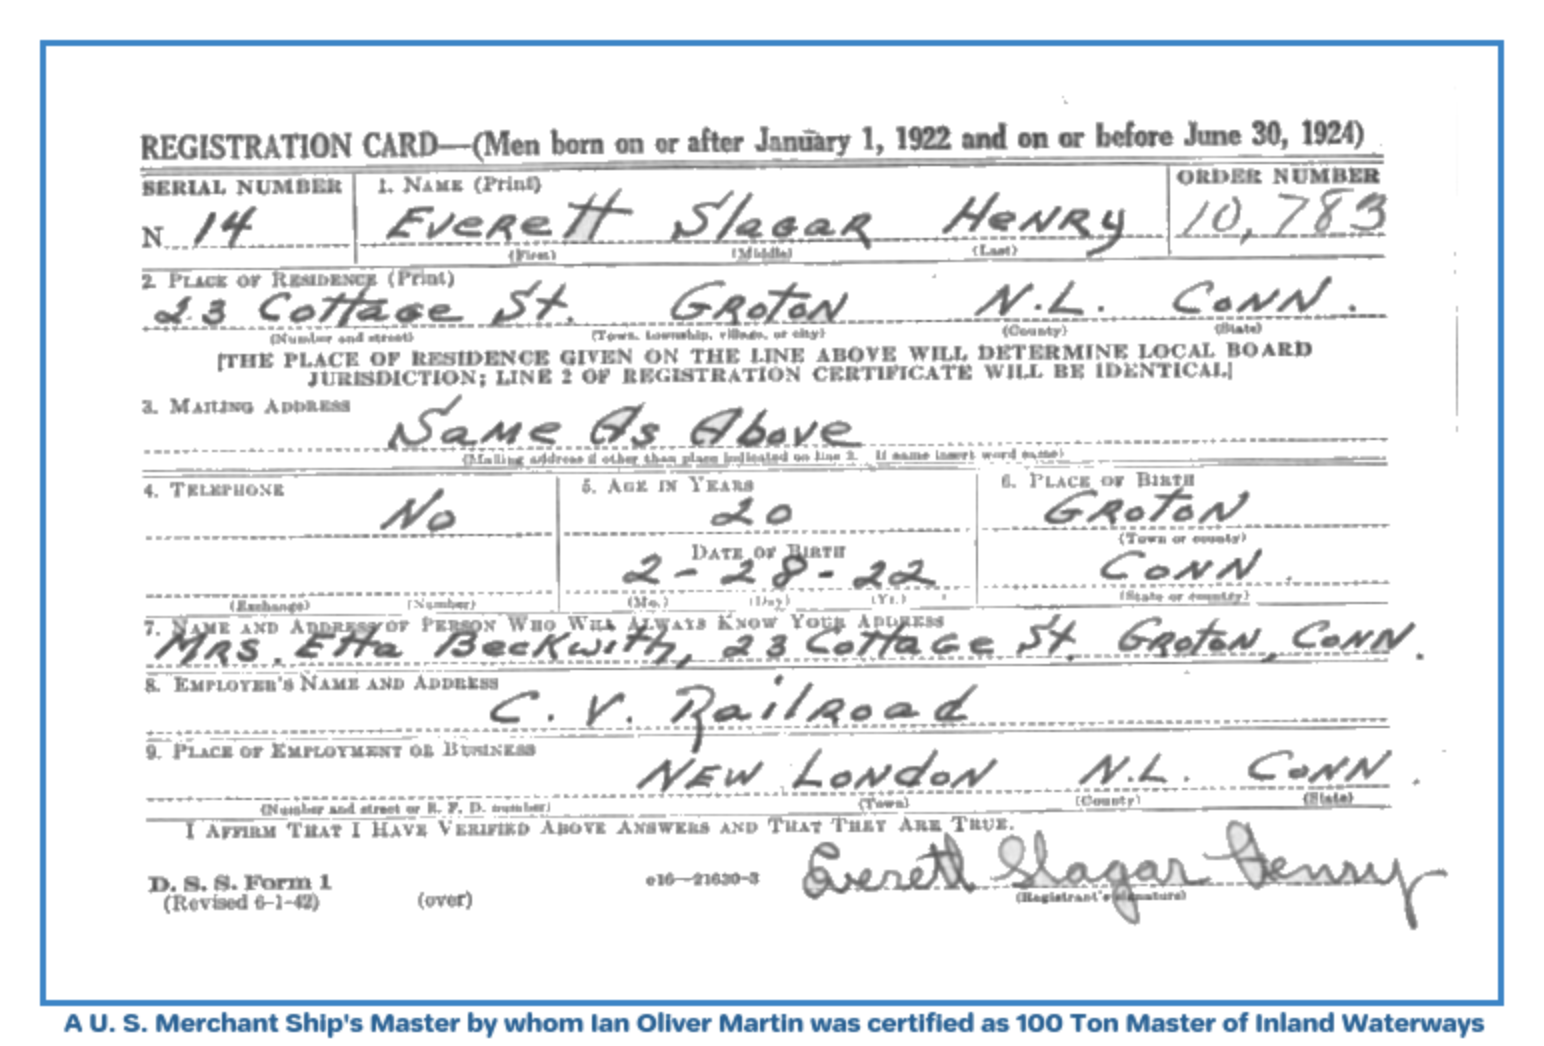 REGISTRATION CARD—(Men born on or after January 1, 1922 and on or before June 30, 1924)
SERIAL NUMBER 1. NAME (Print) ORDER NUMBER
N 14 Everett Slagar Henry 10,783
(First) (Middle) (Last)
2. PLACE OF RESIDENCE (Print)
23 Cottage St. Groton N.L. Conn.
(Number and street) (Town, township, village, or city) (County) (State)
[THE PLACE OF RESIDENCE GIVEN ON THE LINE ABOVE WILL DETERMINE LOCAL BOARD
JURISDICTION; LINE 2 OF REGISTRATION CERTIFICATE WILL BE IDENTICAL]
3. MAILING ADDRESS
Same As Above
(Mailing address if other than place indicated on line 2. If same insert word same)
4. TELEPHONE 5. AGE IN YEARS 6. PLACE OF BIRTH
No 20 Groton
(Town or county)
DATE OF BIRTH
2-28-22 Conn.
(Exchange) (Number) (Mo.) (Day) (Yr.) (State or country)
7. NAME AND ADDRESS OF PERSON WHO WILL ALWAYS KNOW YOUR ADDRESS
Mrs. Etta Beckwith, 23 Cottage St. Groton, Conn.
8. EMPLOYER'S NAME AND ADDRESS
C. V. Railroad
9. PLACE OF EMPLOYMENT OR BUSINESS
New London N.L. Conn.
(Number and street or R. F. D. number) (Town) (County) (State)
I AFFIRM THAT I HAVE VERIFIED ABOVE ANSWERS AND THAT THEY ARE TRUE.
D. S. S. Form 1
(Revised 6-1-42) (over) e16—21630-3 Everett Slagar Henry
(Registrant's signature)
A U. S. Merchant Ship's Master by whom Ian Oliver Martin was certified as 100 Ton Master of Inland Waterways